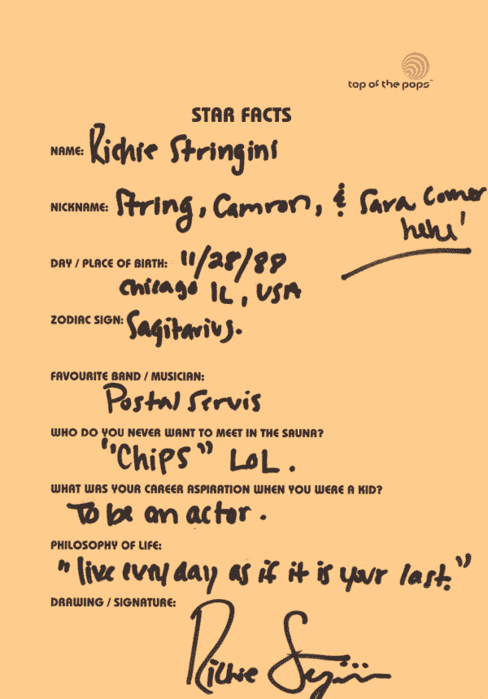 top of the pops™
STAR FACTS
NAME: Richie Stringini
NICKNAME: String, Camron, & Sara Comer
hehe!
DAY / PLACE OF BIRTH: 11/28/88
Chicago IL, USA
ZODIAC SIGN: Sagitarius.
FAVOURITE BAND / MUSICIAN:
Postal Servis
WHO DO YOU NEVER WANT TO MEET IN THE SAUNA?
"Chips" LOL.
WHAT WAS YOUR CAREER ASPIRATION WHEN YOU WERE A KID?
To be an actor.
PHILOSOPHY OF LIFE:
"live every day as if it is your last."
DRAWING / SIGNATURE:
Richie